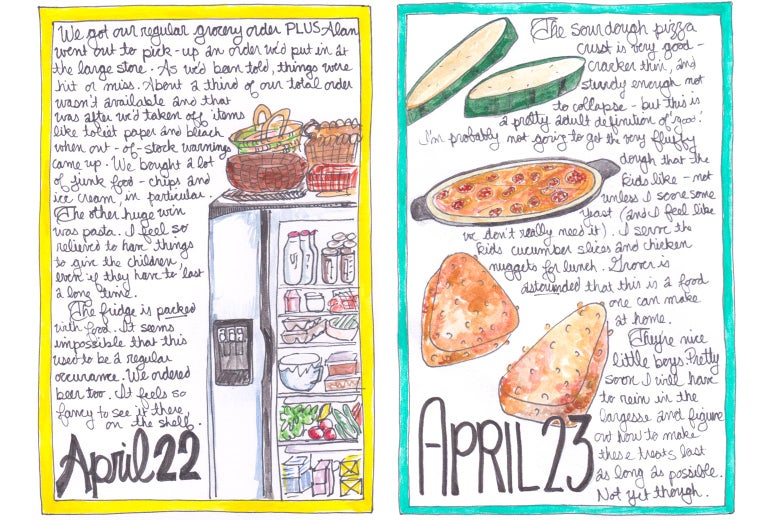 We got our regular grocery order PLUS Alan
went out to pick-up an order we'd put in at
the large store. As we'd been told, things were
hit or miss. About a third of our total order
wasn't available and that
was after we'd taken off items
like toliet paper and bleach
when out-of-stock warnings
came up. We bought a lot
of junk food - chips and
ice cream, in particular.
The other huge win
was pasta. I feel so
relieved to have things
to give the children,
even if they have to last
a long time.
The fridge is packed
with food. It seems
impossible that this
used to be a regular
occurance. We ordered
beer too. It feels so
fancy to see it there
on the shelf.
April 22
The sourdough pizza
crust is very good -
cracker thin, and
sturdy enough not
to collapse - but this is
a pretty adult definition of "good."
I'm probably not going to get the very fluffy
dough that the
kids like - not
unless I score some
yeast (and I feel like
we don't really need it). I serve the
kids cucumber slices and chicken
nuggets for lunch. Grover is
astounded that this is a food
one can make
at home.
They're nice
little boys. Pretty
soon I will have
to rein in the
largesse and figure
out how to make
these treats last
as long as possible.
Not yet though.
APRIL 23